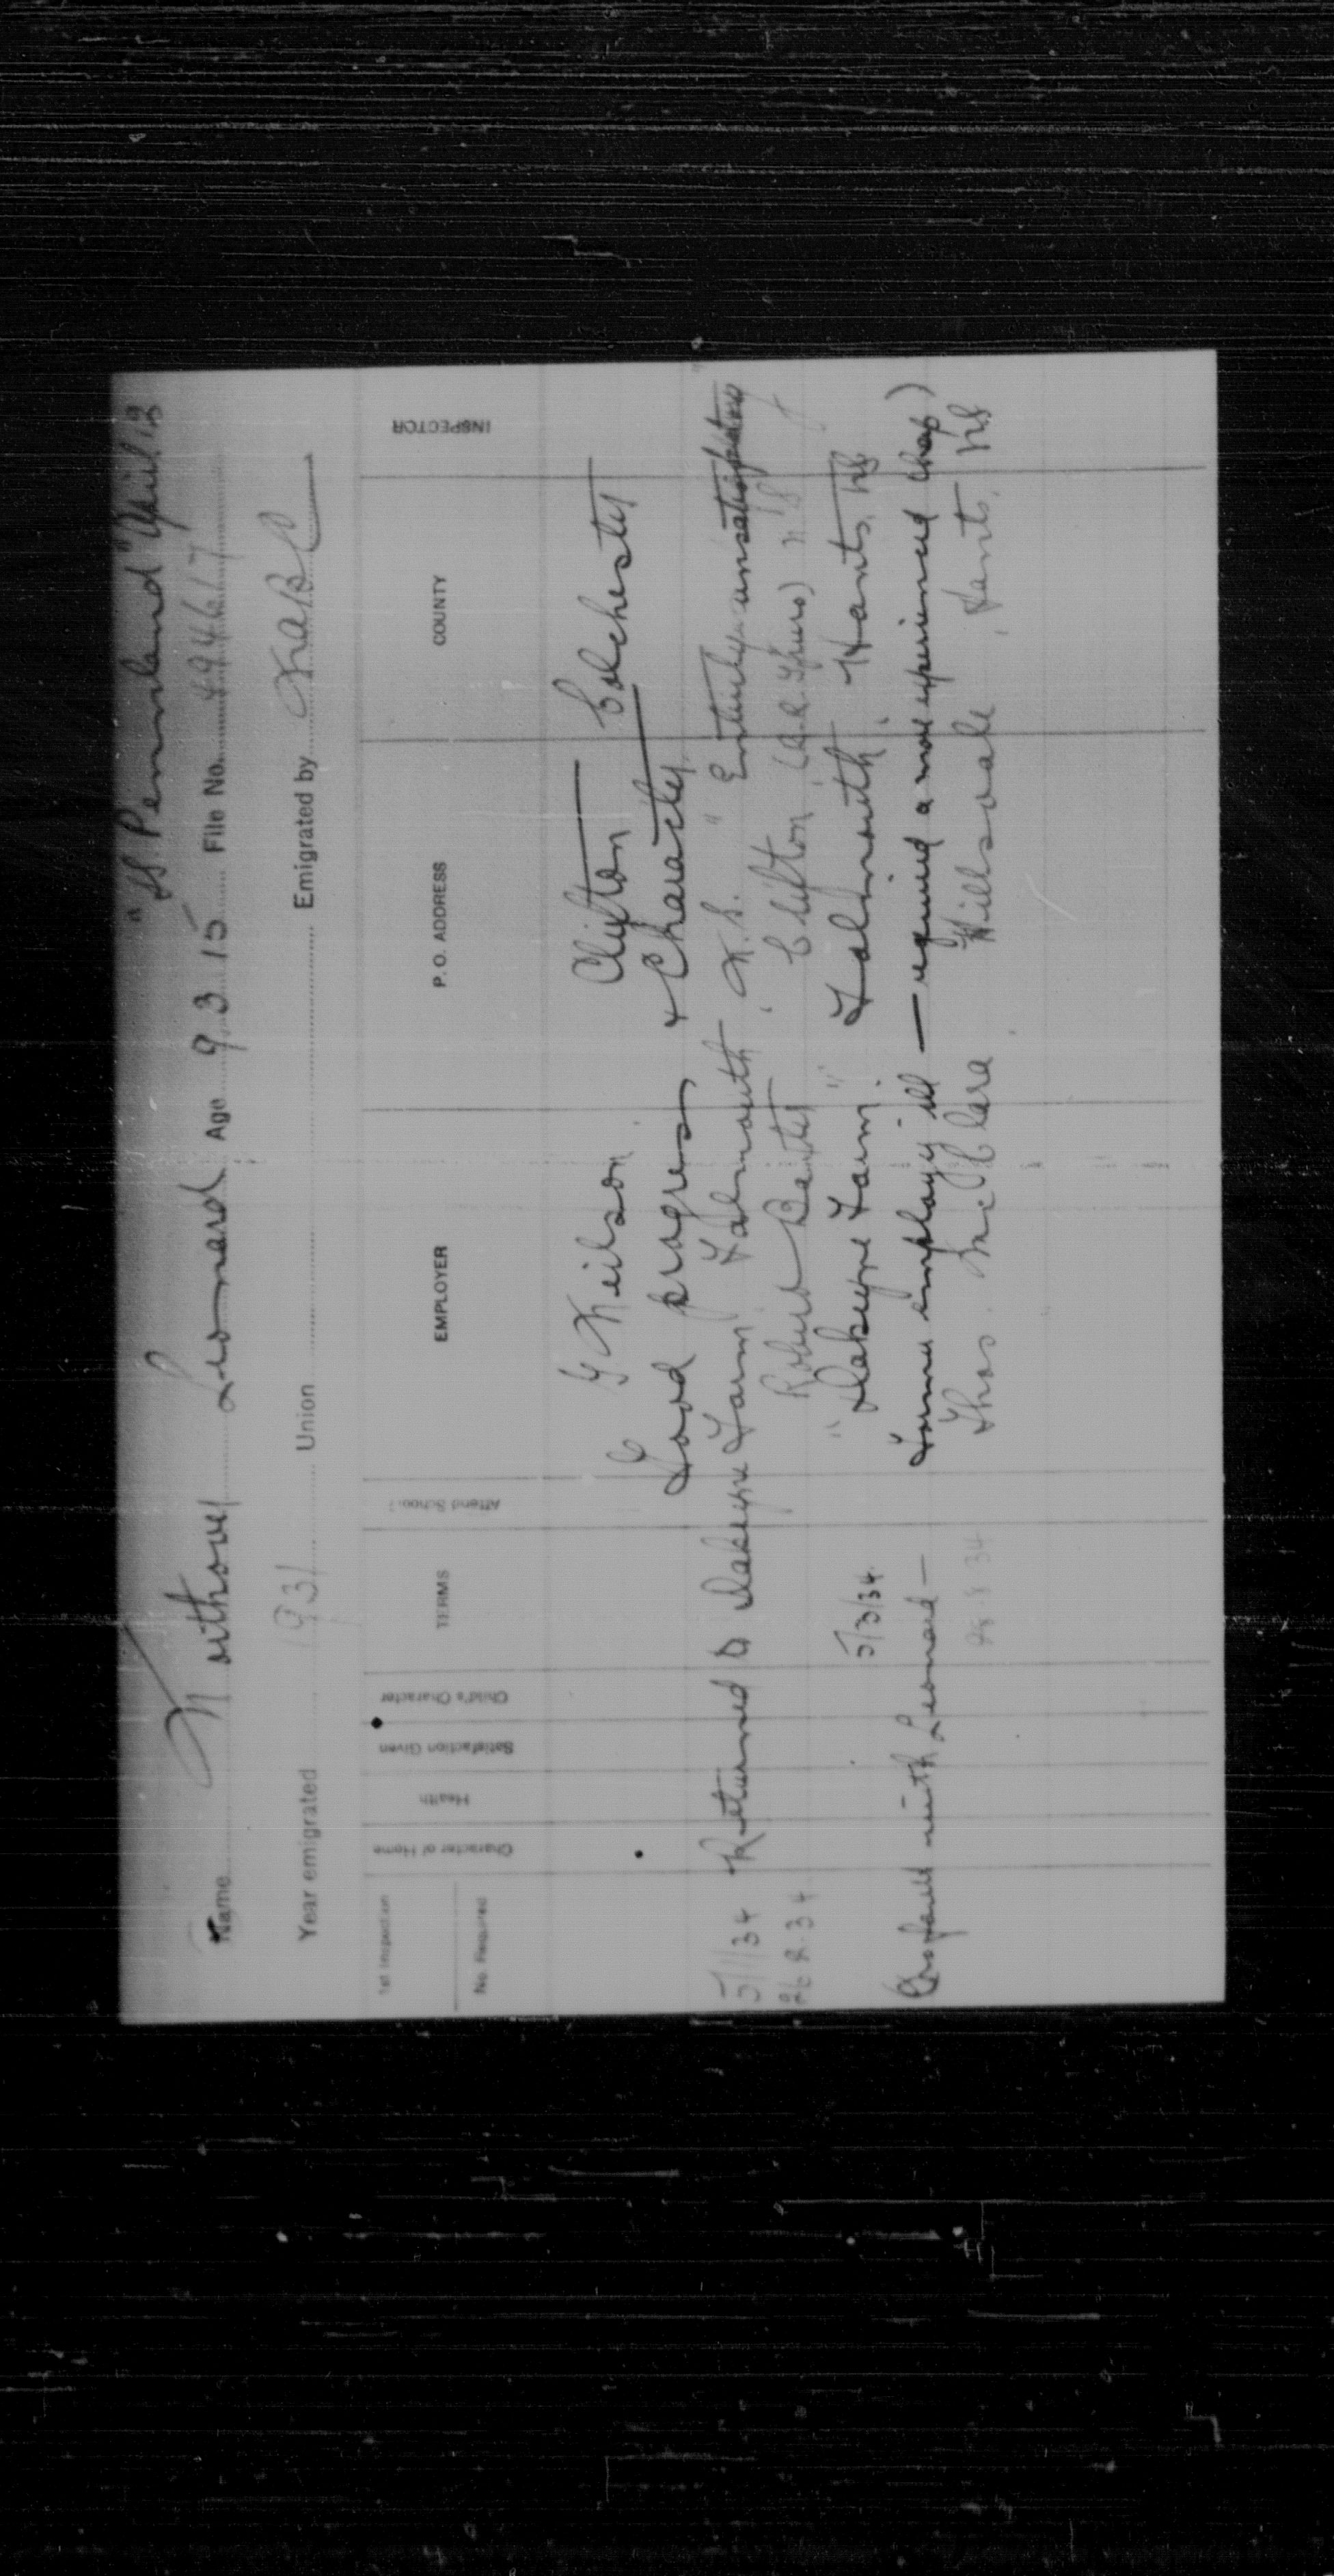 "SS Pennland" April 13
Name Northover Leonard Age 9.3.15 File No. 494617
Year emigrated 1931 Union Emigrated by
1st Inspection
No. Required
Character of Home
Health
Satisfaction Given
Child's Character
TERMS
Attend School?
EMPLOYER
P. O. ADDRESS
COUNTY
INSPECTOR
G Neilson Clifton Colchester
Good progress & Character
5/1/34 Returned to Dakeyne Farm Falmouth, N.S. " Entirely unsatisfactory
26.2.34 Robert Baxter Clifton, N S
5/3/34 "Dakeyne Farm." Falmouth, Hants, NS
(No fault with Leonard — Former employer ill — required a more experienced chap)
28.8.34 Thos. McClara Hillsvale, Hants, NS